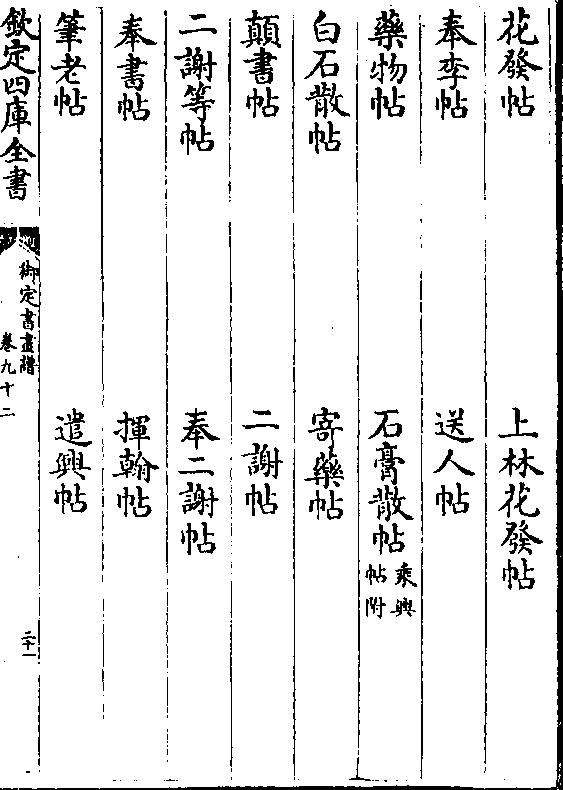 花發帖　上林花發帖
奉李帖　送人帖
藥物帖　石膏散帖乘興帖附
白石散帖　寄藥帖
顛書帖　二謝帖
二謝等帖　奉二謝帖
奉書帖　揮翰帖
筆老帖　遣興帖
欽定四庫全書
御定書畫譜
卷九十二
二十一